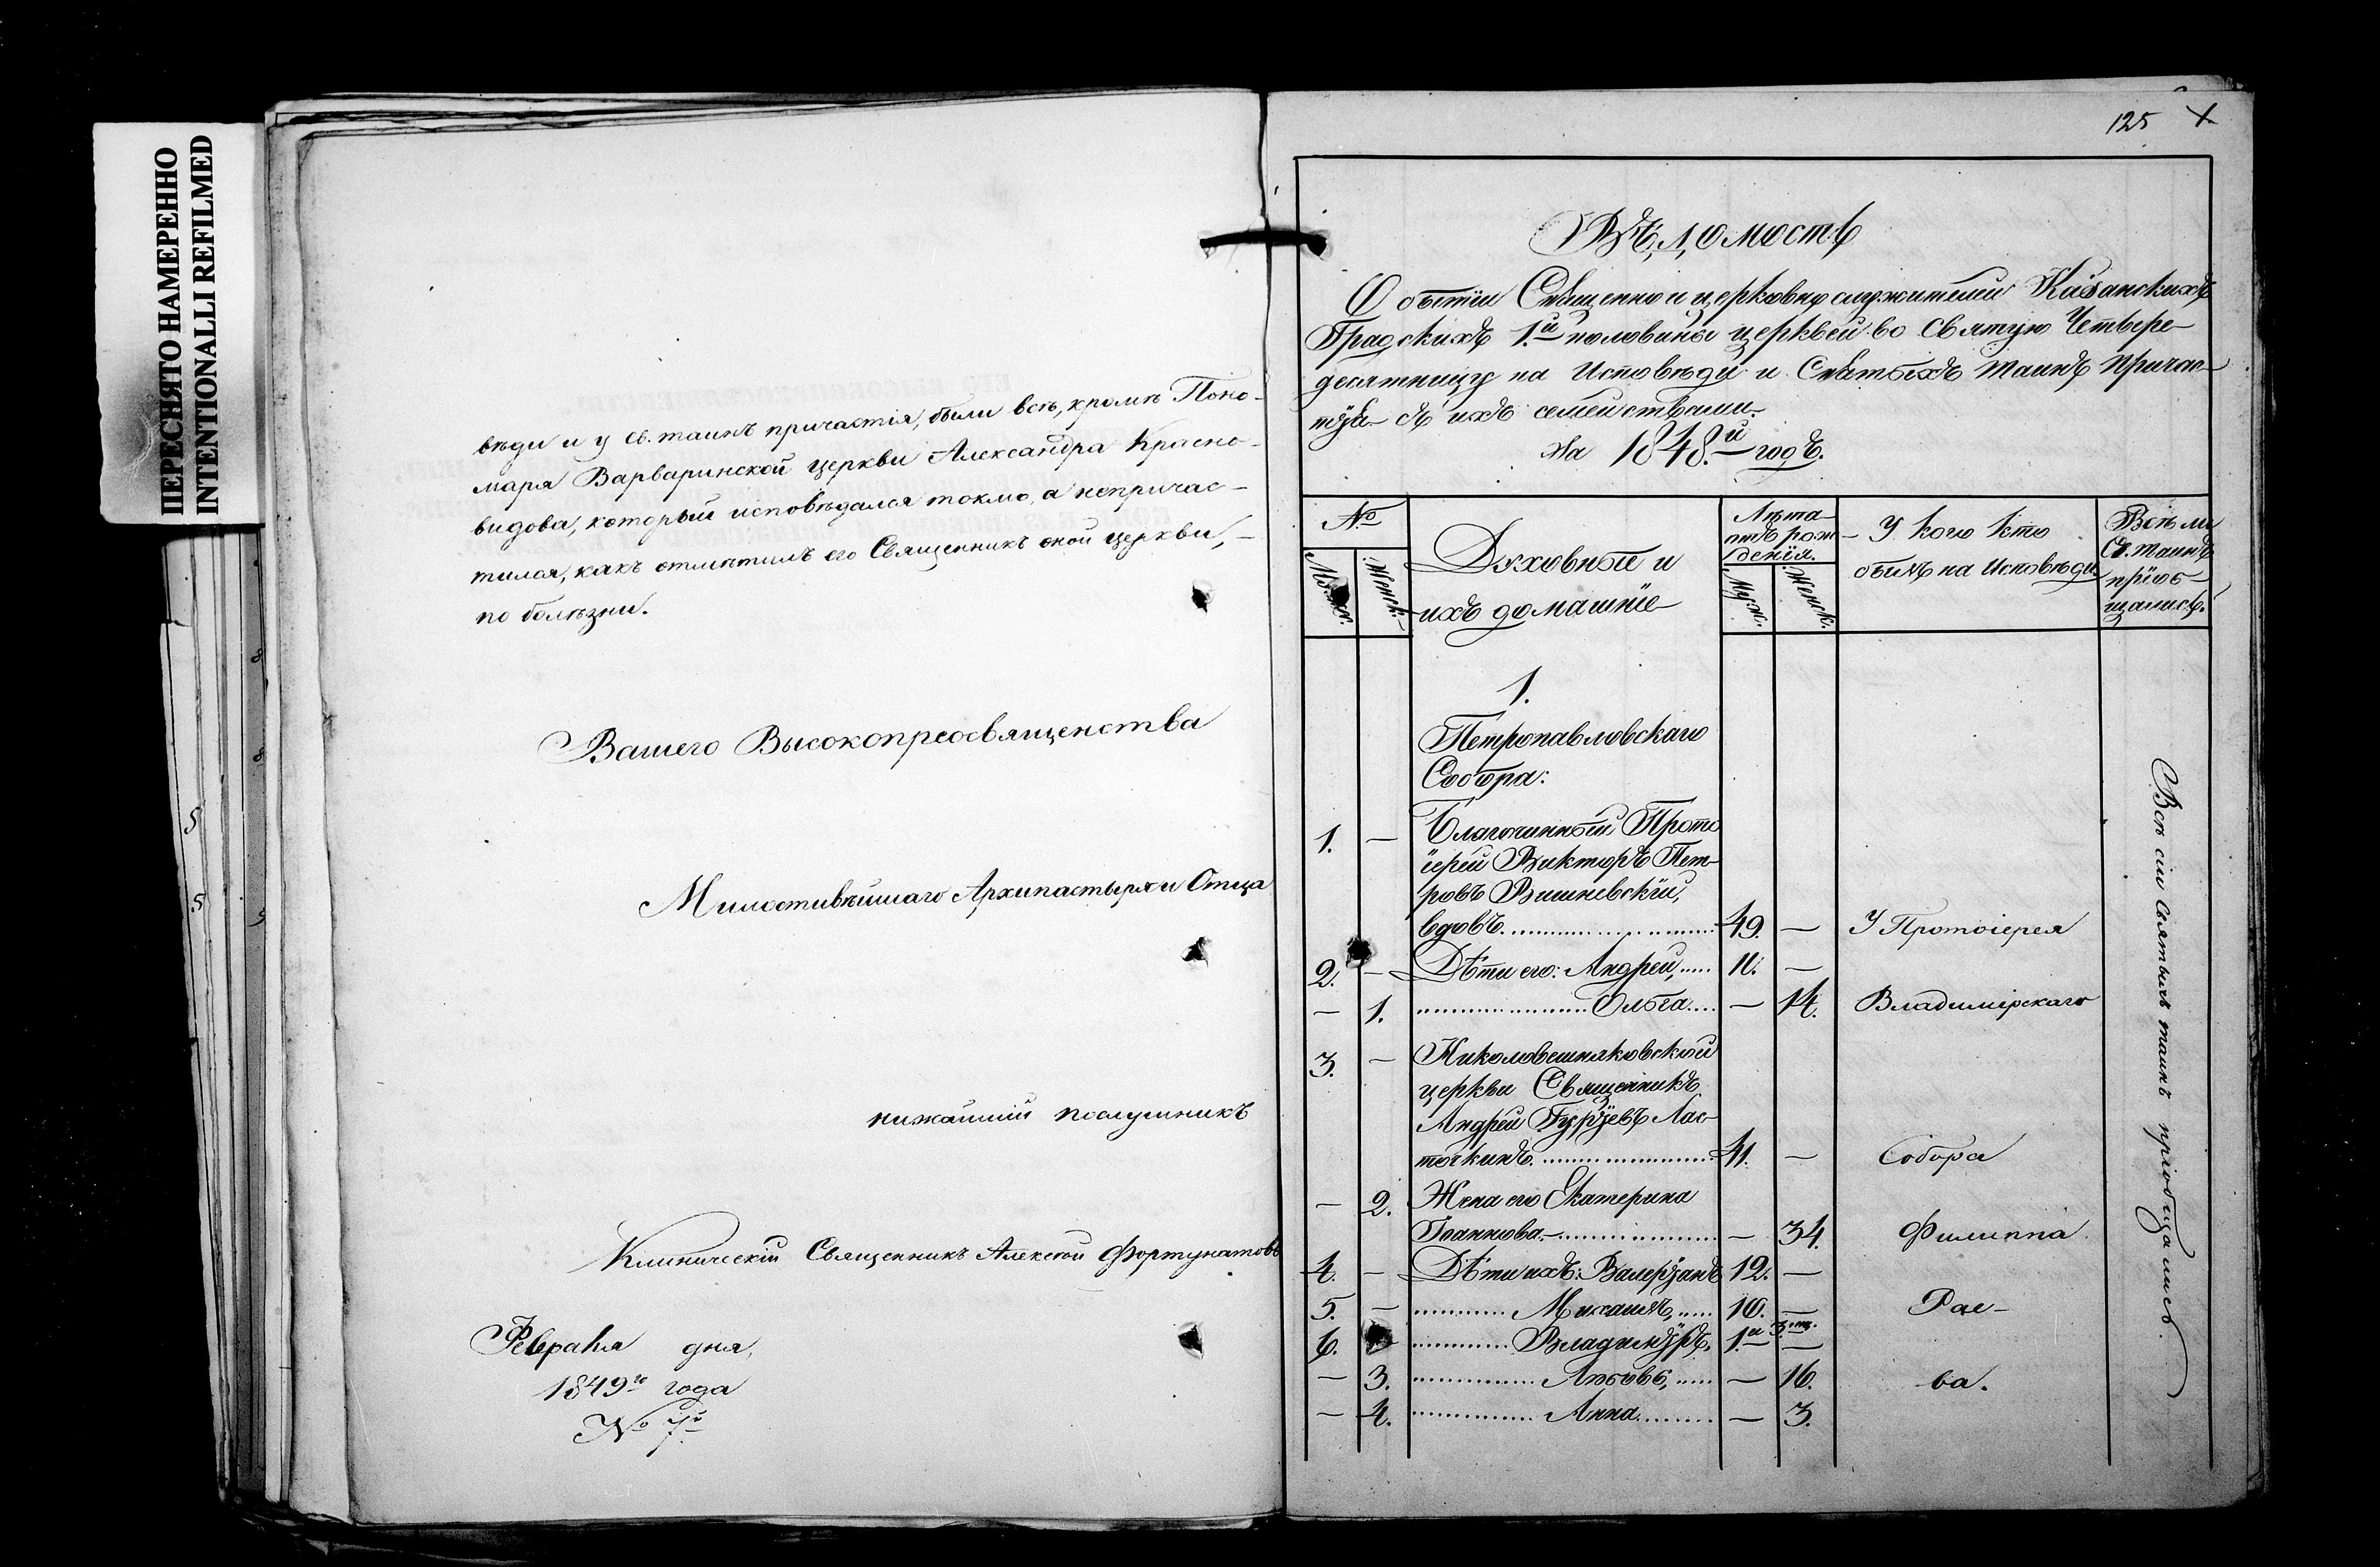 ПЕРЕСНЯТО НАМЕРЕННО
INTENTIONALLI REFILMED
вѣди и у св. таинъ причастія, были всѣ, кромѣ Поно-
маря Варваринской церкви Александра Красно-
видова, который исповѣдался токмо, а непричас-
тился, какъ отмѣтилъ его Священникъ оной церкви, -
по болѣзни.
Вашего Высокопреосвященства
Милостивѣйшаго Архипастыря и Отца
нижайшій послушникъ
Клиническій Священникъ Алексѣй Фортунатовъ
Февраля дня,
1849го года
№ 7й
125
Вѣдомость
О бытіи Священно и церковно служителей Казанскихъ
Градскихъ 1.й половины церквей во Святую Четыре-
десятницу на Исповѣди и Святыхъ таинъ Причас-
тіи съ ихъ семействами.
За 1848.й годъ.
№
Мужс.
Женск.
Духовные и
ихъ домашніе
Лѣта
отъ рож-
денія.
Муж.
Женск.
У кого кто
былъ на Исповѣди
Всѣ ли
Св. таинъ
пріоб-
щались.
1.
Петропавловскаго
Собора:
1. - Благочинный Прото
іерей Викторъ Пет-
ровъ Вишневскій,
вдовъ. 49. - У Протоіерея
2. - Дѣти его: Андрей, 11. -
- 1. Ольга - 14. Владимірскаго
3. - Николовешняковской
церкви Священникъ
Андрей Гурьевъ Лас-
точкинъ. 41. - Собора
- 2. Жена его Екатерина
Іоаннова - 34. Филиппа
4. - Дѣти ихъ: Валеріанъ 12. -
5. - Михаилъ, 10. - Рае-
6. Владиміръ, 1.й 3.мц. -
- 3. Любовь, - 16. ва.
- 4. Анна - 3.
Всѣ сіи Святыхъ таинъ пріобщались.